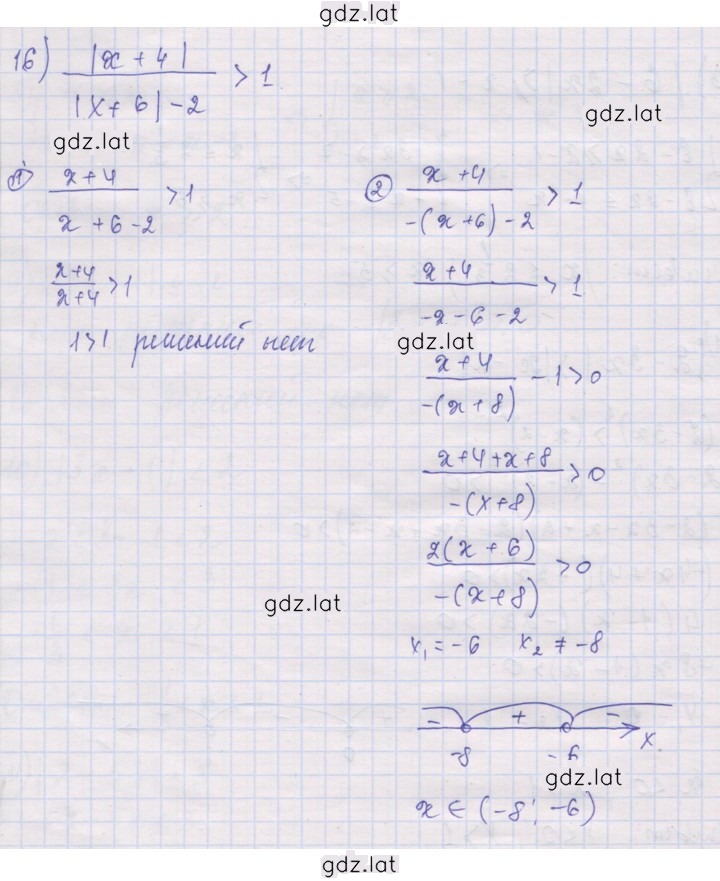 gdz.lat
16) |x + 4| / (|x + 6| - 2) > 1
gdz.lat
gdz.lat
1) (x + 4) / (x + 6 - 2) > 1
(x+4) / (x+4) > 1
1>1 решений нет
2 (x + 4) / (-(x+6) - 2) > 1
(x+4) / (-x - 6 - 2) > 1
gdz.lat
(x+4) / (-(x+8)) - 1 > 0
(x+4+x+8) / (-(x+8)) > 0
2(x+6) / (-(x+8)) > 0
gdz.lat
x₁ = -6 x₂ ≠ -8
- + - x
-8 -6
gdz.lat
x ∈ (-8; -6)
gdz.lat